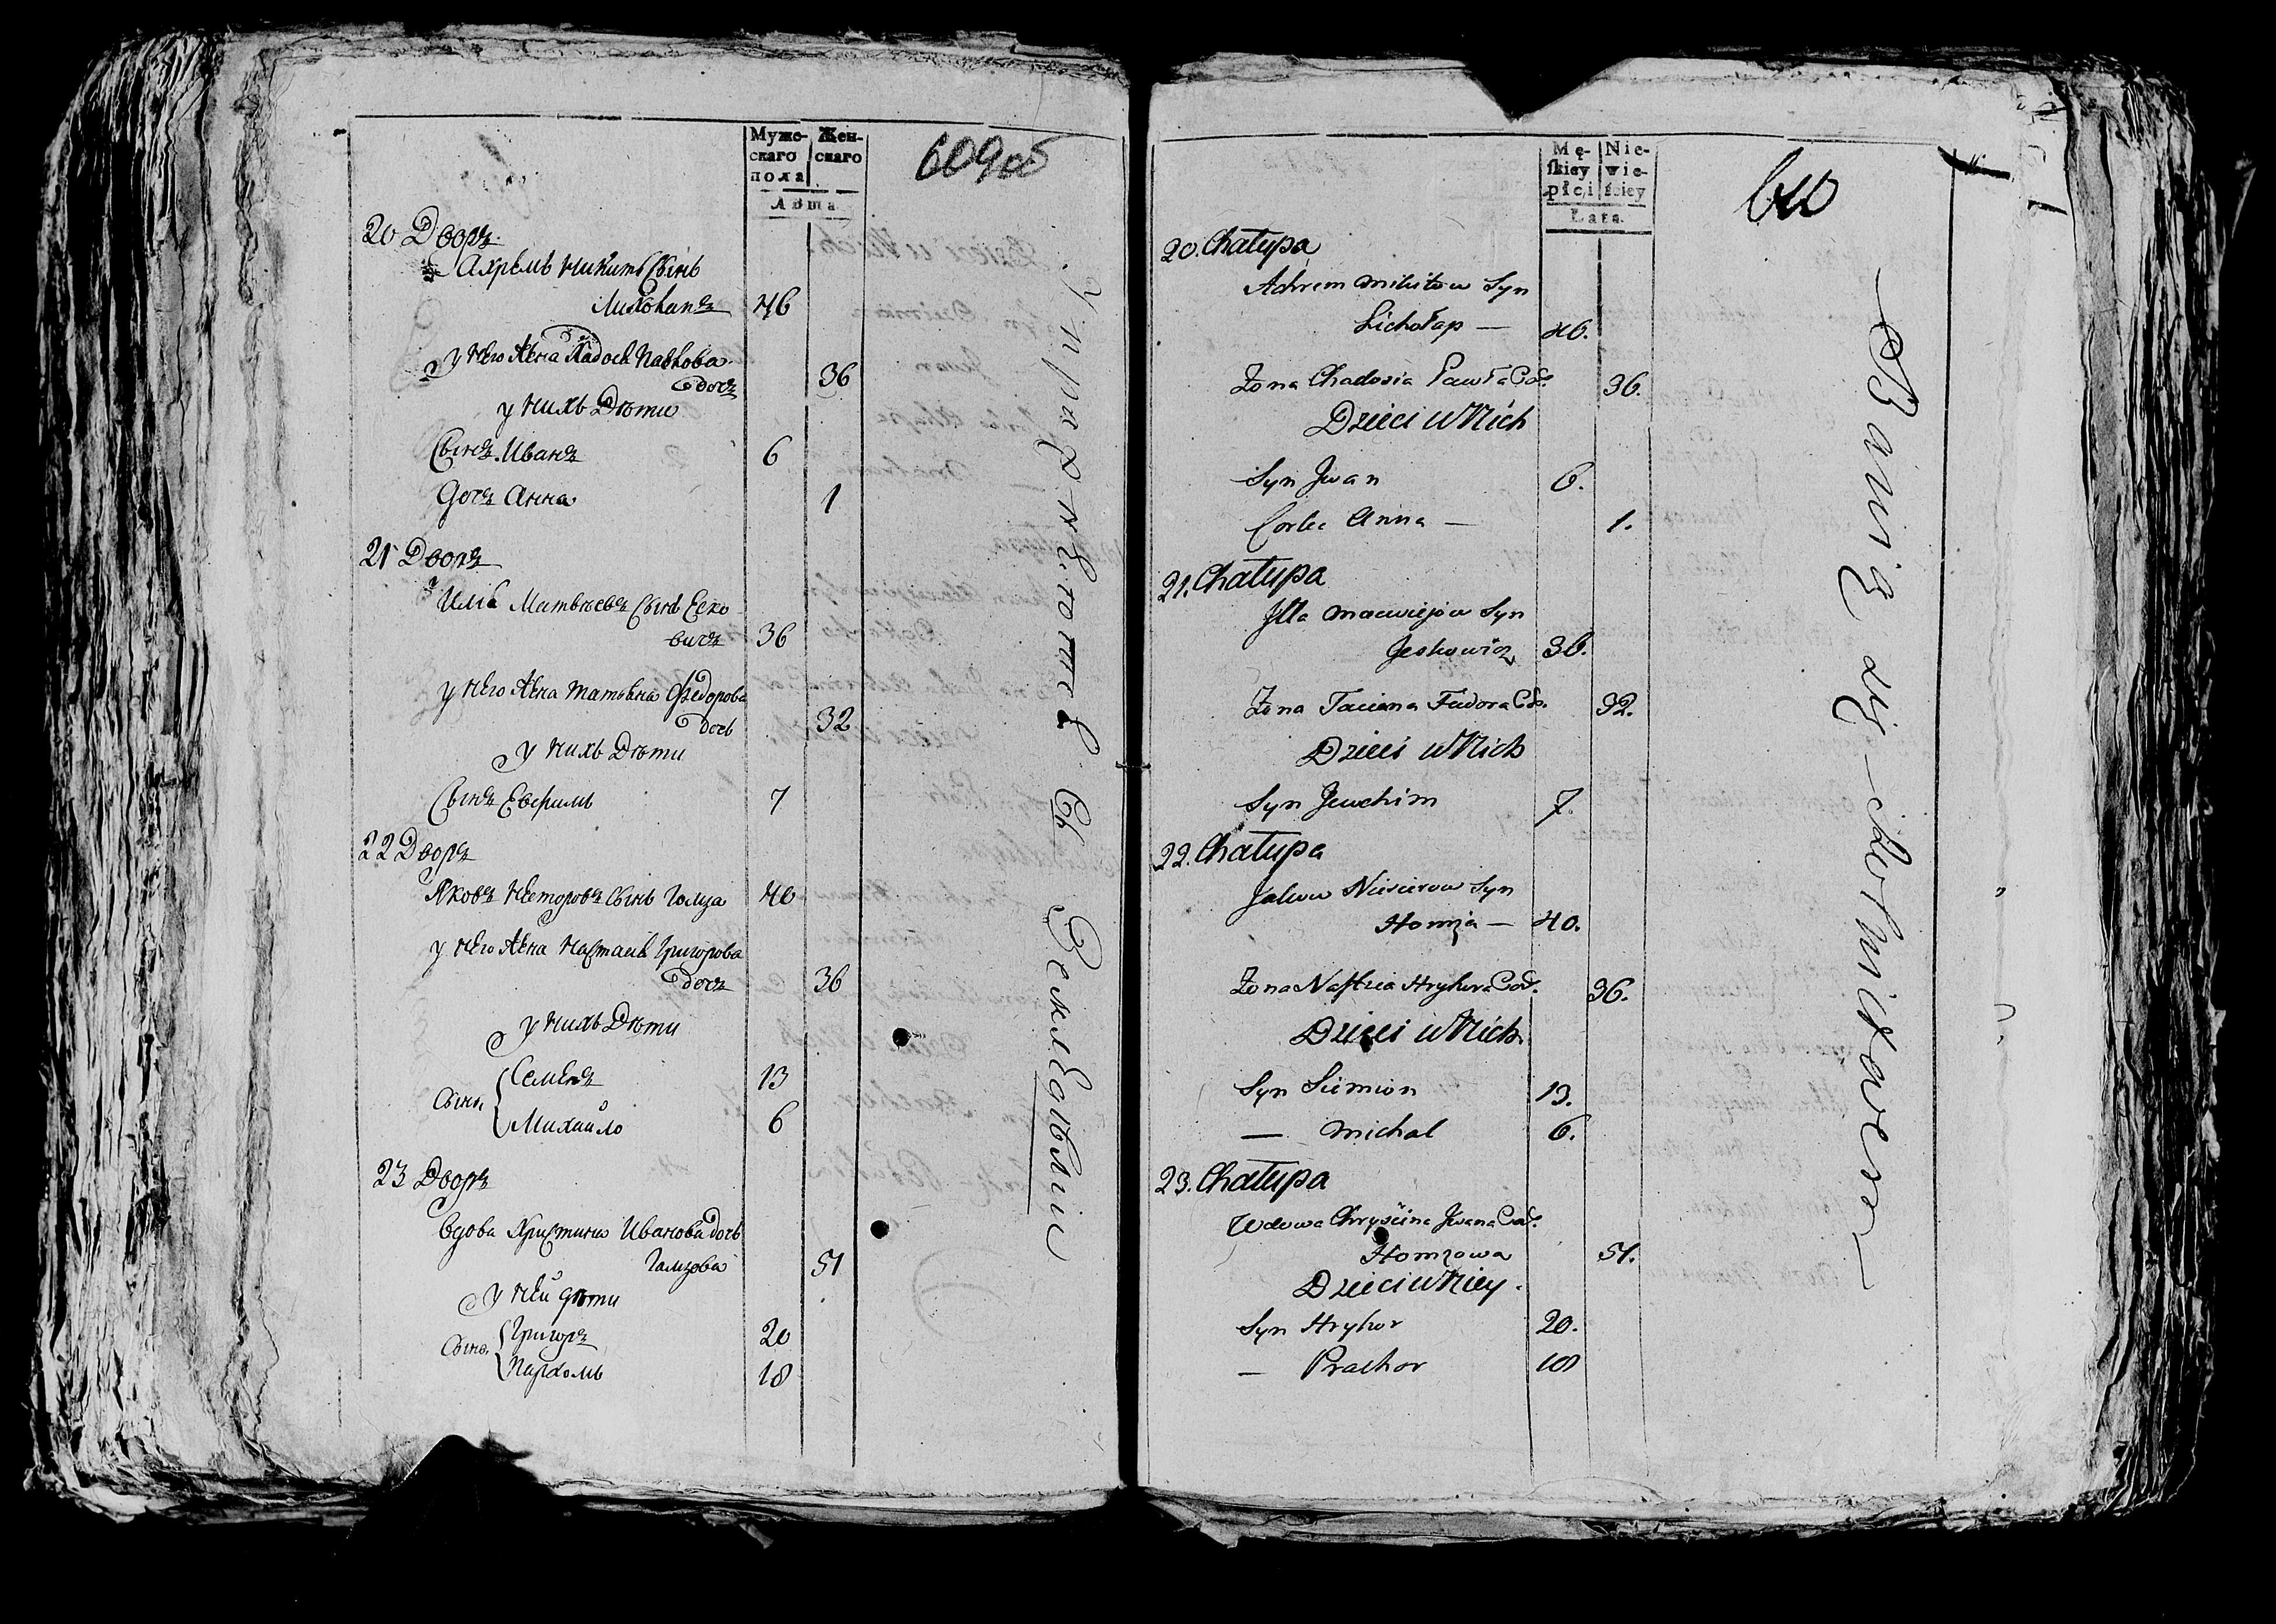 Муже-
скаго
пола
Жен-
скаго
Лѣта
609об
20 Дворъ
Ахремъ Никитъ Сынъ
Лихолапъ 46
у него Жена Хадося Павлова
дочь 36
у нихъ Дѣти
Сынъ Иванъ 6
дочь Анна 1
21 Дворъ
Илья Матвѣевъ Сынъ Еско
вичъ 36
у него Жена Татьяна Федорова
дочь 32
у нихъ Дѣти
Сынъ Евхимъ 7
22 Дворъ
Яковъ Несторовъ Сынъ Гомза 40
у него Жена Настасья Григорова
дочь 36
у нихъ Дѣти
Сыны
Семенъ 13
Михайло 6
23 Дворъ
вдова Христина Иванова дочь
Гомзова 51
у ней дѣти
Сыны
Григоръ 20
Пархомъ 18
Mę-
skiey
płci
Nie-
wie-
ściey
Lata
610
20. Chałupa
Achrem Mikitow Syn
Lichołap — 46.
Zona Chadosia Pawła Cór. 36.
Dzieci u Nich
Syn Jwan 6.
Corka Anna — 1.
21. Chałupa
Jlla Maciejow Syn
Jeskowicz 36.
Zona Taciana Fiedora Cór. 32.
Dzieci u Nich
Syn Jewchim 7.
22. Chałupa
Jakow Niescierow Syn
Homza — 40.
Zona Nastzia Hryhora Cór. 36.
Dzieci u Nich
Syn Siemion 13.
— Michal 6.
23. Chałupa
Wdowa Chryścina Jwana Cór.
Homzowa 51.
Dzieci u Niey.
Syn Hryhor 20.
— Prachor 18